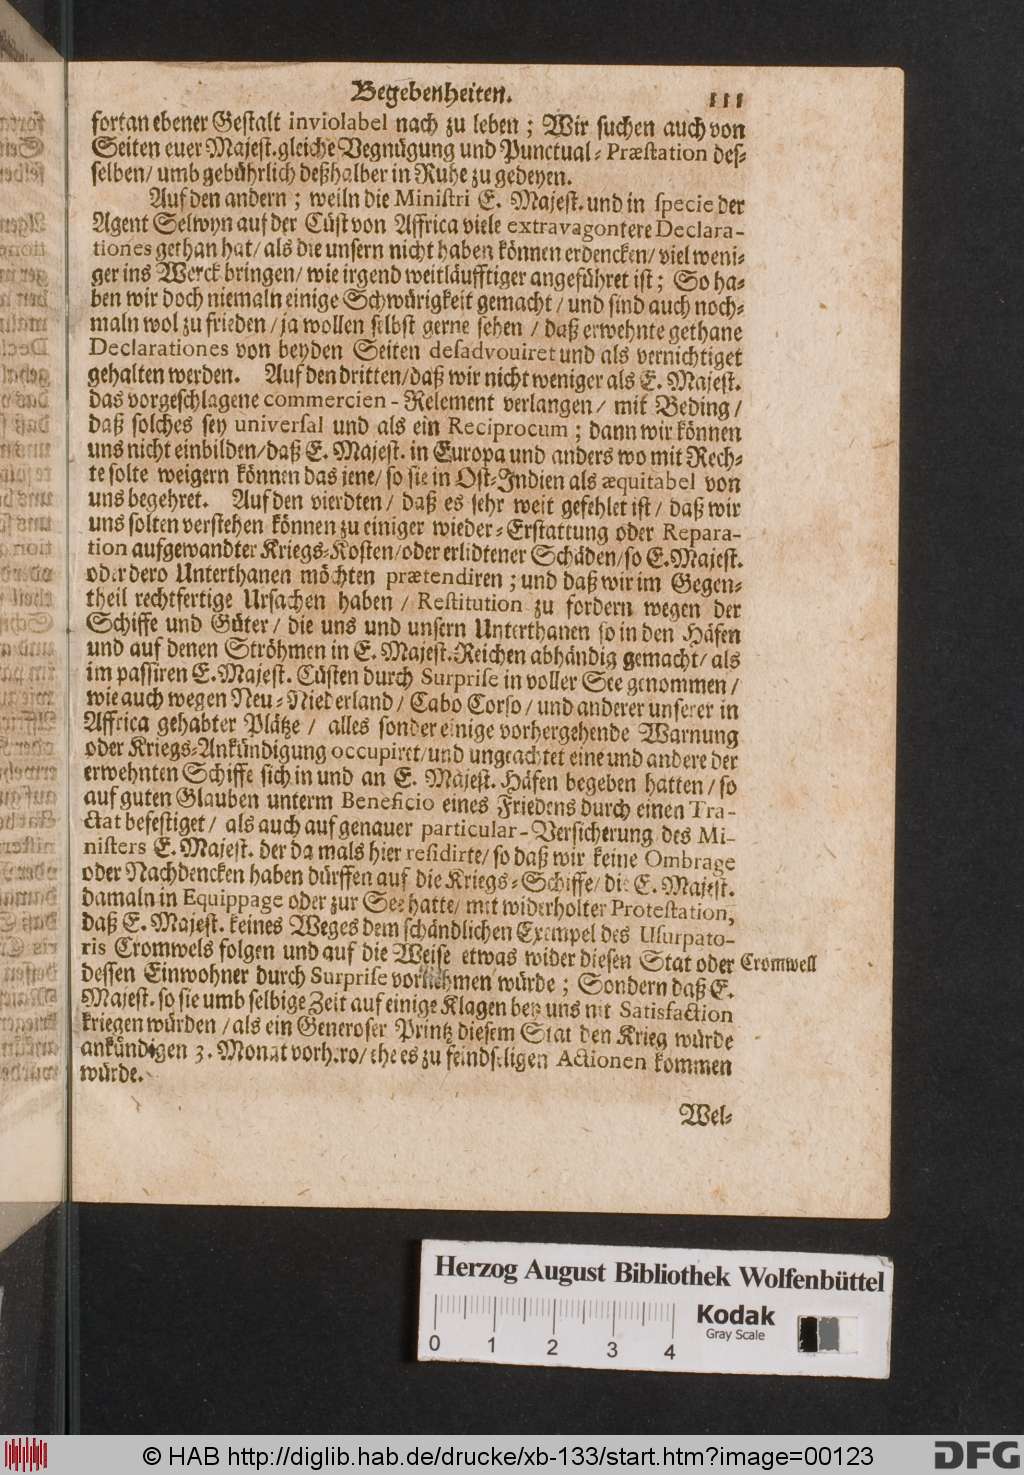 Begebenheiten. 111
fortan ebener Gestalt inviolabel nach zu leben ; Wir suchen auch von
Seiten euer Majest. gleiche Vegnügung und Punctual-Præstation des-
selben/ umb gebührlich deßhalber in Ruhe zu gedeyen.
Auf den andern ; weiln die Ministri E. Majest. und in specie der
Agent Selwyn auf der Cüst von Affrica viele extravagontere Declara-
tiones gethan hat/ als die unsern nicht haben können erdencken/ viel weni-
ger ins Werck bringen/ wie irgend weitläufftiger angeführet ist ; So ha-
ben wir doch niemaln einige Schwürigkeit gemacht / und sind auch noch-
maln wol zu frieden / ja wollen selbst gerne sehen / daß erwehnte gethane
Declarationes von beyden Seiten desadvouiret und als vernichtiget
gehalten werden. Auf den dritten/ daß wir nicht weniger als E. Majest.
das vorgeschlagene commercien-Relement verlangen / mit Beding /
daß solches sey universal und als ein Reciprocum ; dann wir können
uns nicht einbilden/ daß E. Majest. in Europa und anders wo mit Rech-
te solte weigern können das jene/ so sie in Ost-Indien als æquitabel von
uns begehret. Auf den vierdten / daß es sehr weit gefehlet ist / daß wir
uns solten verstehen können zu einiger wieder-Erstattung oder Repara-
tion aufgewandter Kriegs-Kosten/ oder erlidtener Schäden/ so E. Majest.
oder dero Unterthanen möchten prætendiren ; und daß wir im Gegen-
theil rechtfertige Ursachen haben / Restitution zu fordern wegen der
Schiffe und Güter / die uns und unsern Unterthanen so in den Häfen
und auf denen Ströhmen in E. Majest. Reichen abhändig gemacht/ als
im passiren E. Majest. Cüsten durch Surprise in voller See genommen /
wie auch wegen Neu-Niederland / Cabo Corso / und anderer unserer in
Affrica gehabter Plätze / alles sonder einige vorhergehende Warnung
oder Kriegs-Ankündigung occupiret/ und ungeachtet eine und andere der
erwehnten Schiffe sich in und an E. Majest. Häfen begeben hatten / so
auf guten Glauben unterm Beneficio eines Friedens durch einen Tra-
ctat befestiget / als auch auf genauer particular-Versicherung des Mi-
nisters E. Majest. der da mals hier residirte/ so daß wir keine Ombrage
oder Nachdencken haben dürffen auf die Kriegs-Schiffe/ die E. Majest.
damaln in Equippage oder zur See hatte/ mit widerholter Protestation,
daß E. Majest. keines Weges dem schändlichen Exempel des Usurpato-
ris Cromwels folgen und auf die Weise etwas wider diesen Stat oder Cromwell
dessen Einwohner durch Surprise vornehmen würde ; Sondern daß E.
Majest. so sie umb selbige Zeit auf einige Klagen bey uns nit Satisfaction
kriegen würden / als ein Generoser Printz diesem Stat den Krieg würde
ankündigen 3. Monat vorhero/ ehe es zu feindseligen Actionen kommen
würde.
Wel-
Herzog August Bibliothek Wolfenbüttel
Kodak
Gray Scale
0 1 2 3 4
© HAB http://diglib.hab.de/drucke/xb-133/start.htm?image=00123
DFG